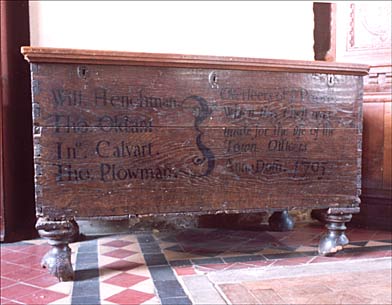 Will. Henchman.
Tho. Oldam.
Jnº. Calvart.
Tho. Plowman.
Overseers of ye Poor
When this Chest was
made for the use of the
Town Officers
Anno Dom. 1705